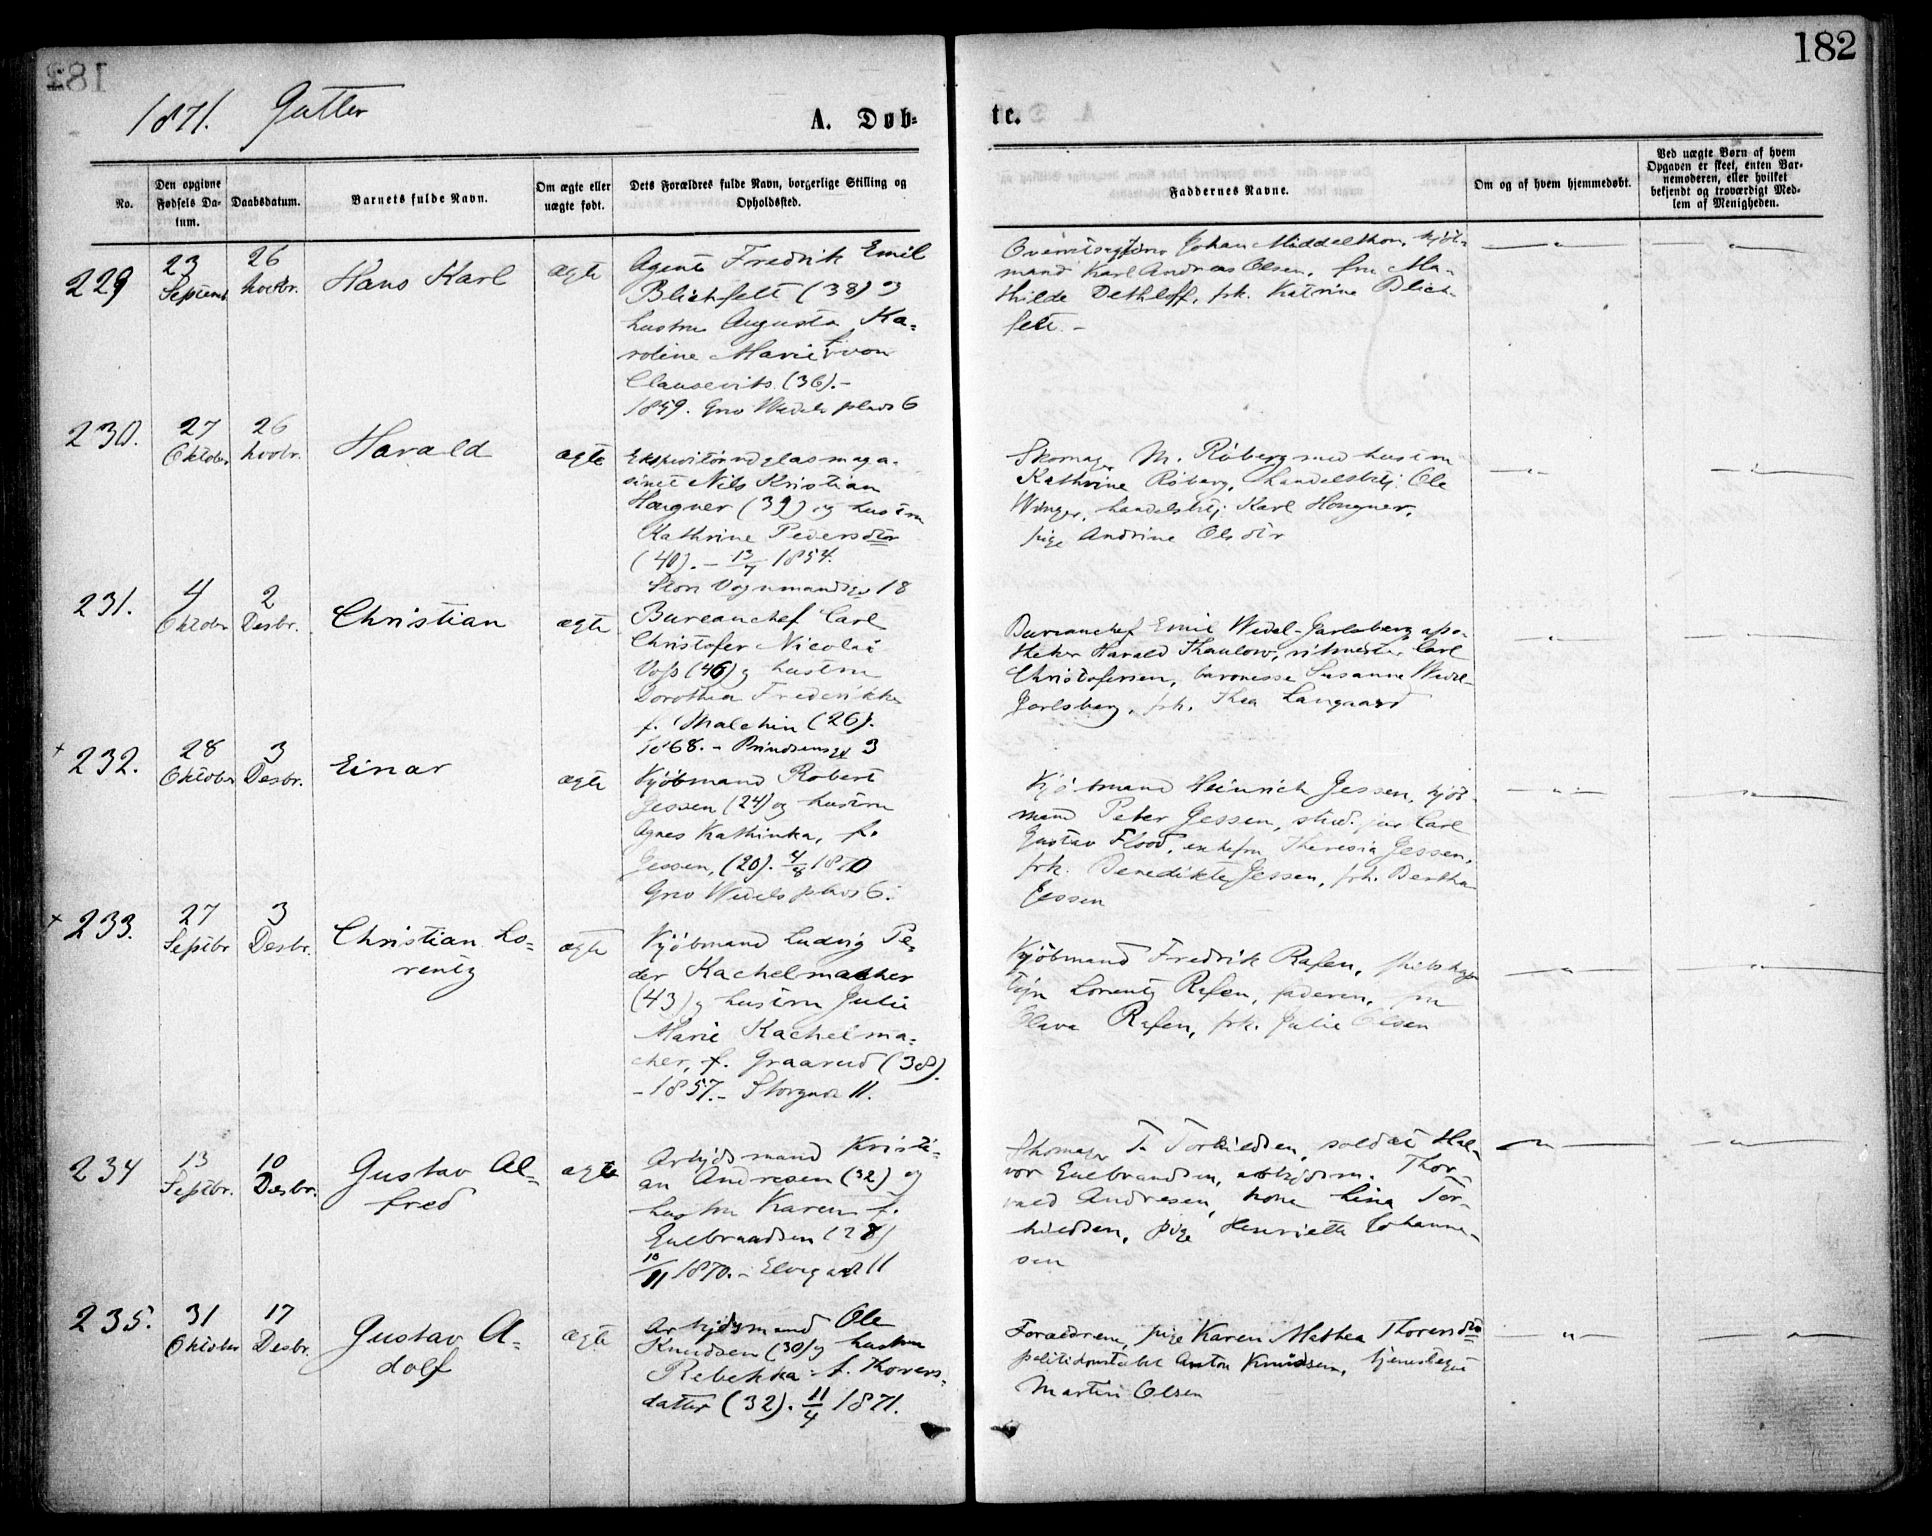 182
1871. Gutter
A. Døb-
te.
No.
Den opgivne Fødsels Da-tum.
Daabsdatum.
Barnets fulde Navn.
Om ægte eller uægte født.
Dets Forældres fulde Navn, borgerlige Stilling og Opholdssted.
Faddernes Navne.
Om og af hvem hjemmedøbt.
Ved uægte Børn af hvem Opgaven er skeet, enten Bar-nemoderen, eller hvilket bekjendt og troværdigt Med-lem af Menigheden.
229
23 Septemb
26 Novbr.
Hans Karl
ægte
Agent Fredrik Emil
Blichfelt (38) og
hustru Augusta Ka-
roline Marie f. von
Clausevits (36).-
1859. Grev Wedels plads 6
Johan Middelthon, kjøb-
mand Karl Andreas Olsen, fru Ma-
thilde Dethloff, frk. Katrine Blich-
felt.-
230.
27 Oktober
26 Novbr.
Harald
ægte
Expeditør ved glasmaga-
sinet Nils Kristian
Hougner (39) og hustru
Kathrine Pedersdtr
(40).- 13/7 1854.
Store Vognmandsg 18
Skomager M. Röberg med hustru
Kathrine Röberg, handelsbetj. Ole
Winger, handelsbetj. Karl Hougner,
pige Andrine Olsdtr
231.
4 Oktober
2 Desbr.
Christian
ægte
Bureauchef Carl
Christofer Nicolai
Voss (46) og hustru
Dorothea Frederikke
f. Malchin (26).
1868.- Prindsensg 3
Bureauchef Emil Wedel-Jarlsberg, apo-
theker Harald Thaulow, ritmester Carl
Christofersen, baronesse Susanne Wedel-
Jarlsberg, frk. Thea Langaard
+ 232.
28 Oktober
3 Desbr.
Einar
ægte
Kjøbmand Robert
Jessen (24) og hustru
Agnes Kathinka, f.
Jessen, (20). 4/8 1870
Grev Wedels plads 6.
Kjøbmand Heinrich Jessen, kjøb-
mand Peter Jessen, stud. jur Carl
Gustav Flood, enkefru Theresia Jessen,
frk. Benedikte Jessen, frk. Bertha
Jessen
+ 233.
27 Septbr
3 Desbr.
Christian Lo-
rentz
ægte
Kjøbmand Ludvig Pe-
der Kachelmacher
(43) og hustru Julie
Marie Kachelma-
cher, f. Graarud (38).
- 1857.- Storgaden 11.
Kjøbmand Fredrik Rafen, skibskap-
tejn Lorentz Rafen, faderen, fru
Olava Rafen, frk. Julie Olsen
234
13 Septbr.
10 Desbr.
Gustav Al-
fred
ægte
Arbejdsmand Kristi-
an Andresen (32) og
hustru Karen f.
Engebraadsen (28)
10/11 1870.- Elvegaden 11
Skomager T. Torkildsen, soldat Hal-
vor Engebrandsen, arbejdsm. Thor-
vald Andresen, kone Lina Tor-
kildsen, pige Henriette Johanne-
sen
235.
31 Oktober
17 Desbr.
Gustav A-
dolf
ægte
Arbejdsmand Ole
Knudsen (30) og hustru
Rebekka f. Thorers-
datter (32). 11/4 1871.
Forældrene, pige Karen Mathea Thorersdtr
politikonstabel Anton Knudsen, tjenestepige
Martin Olsen